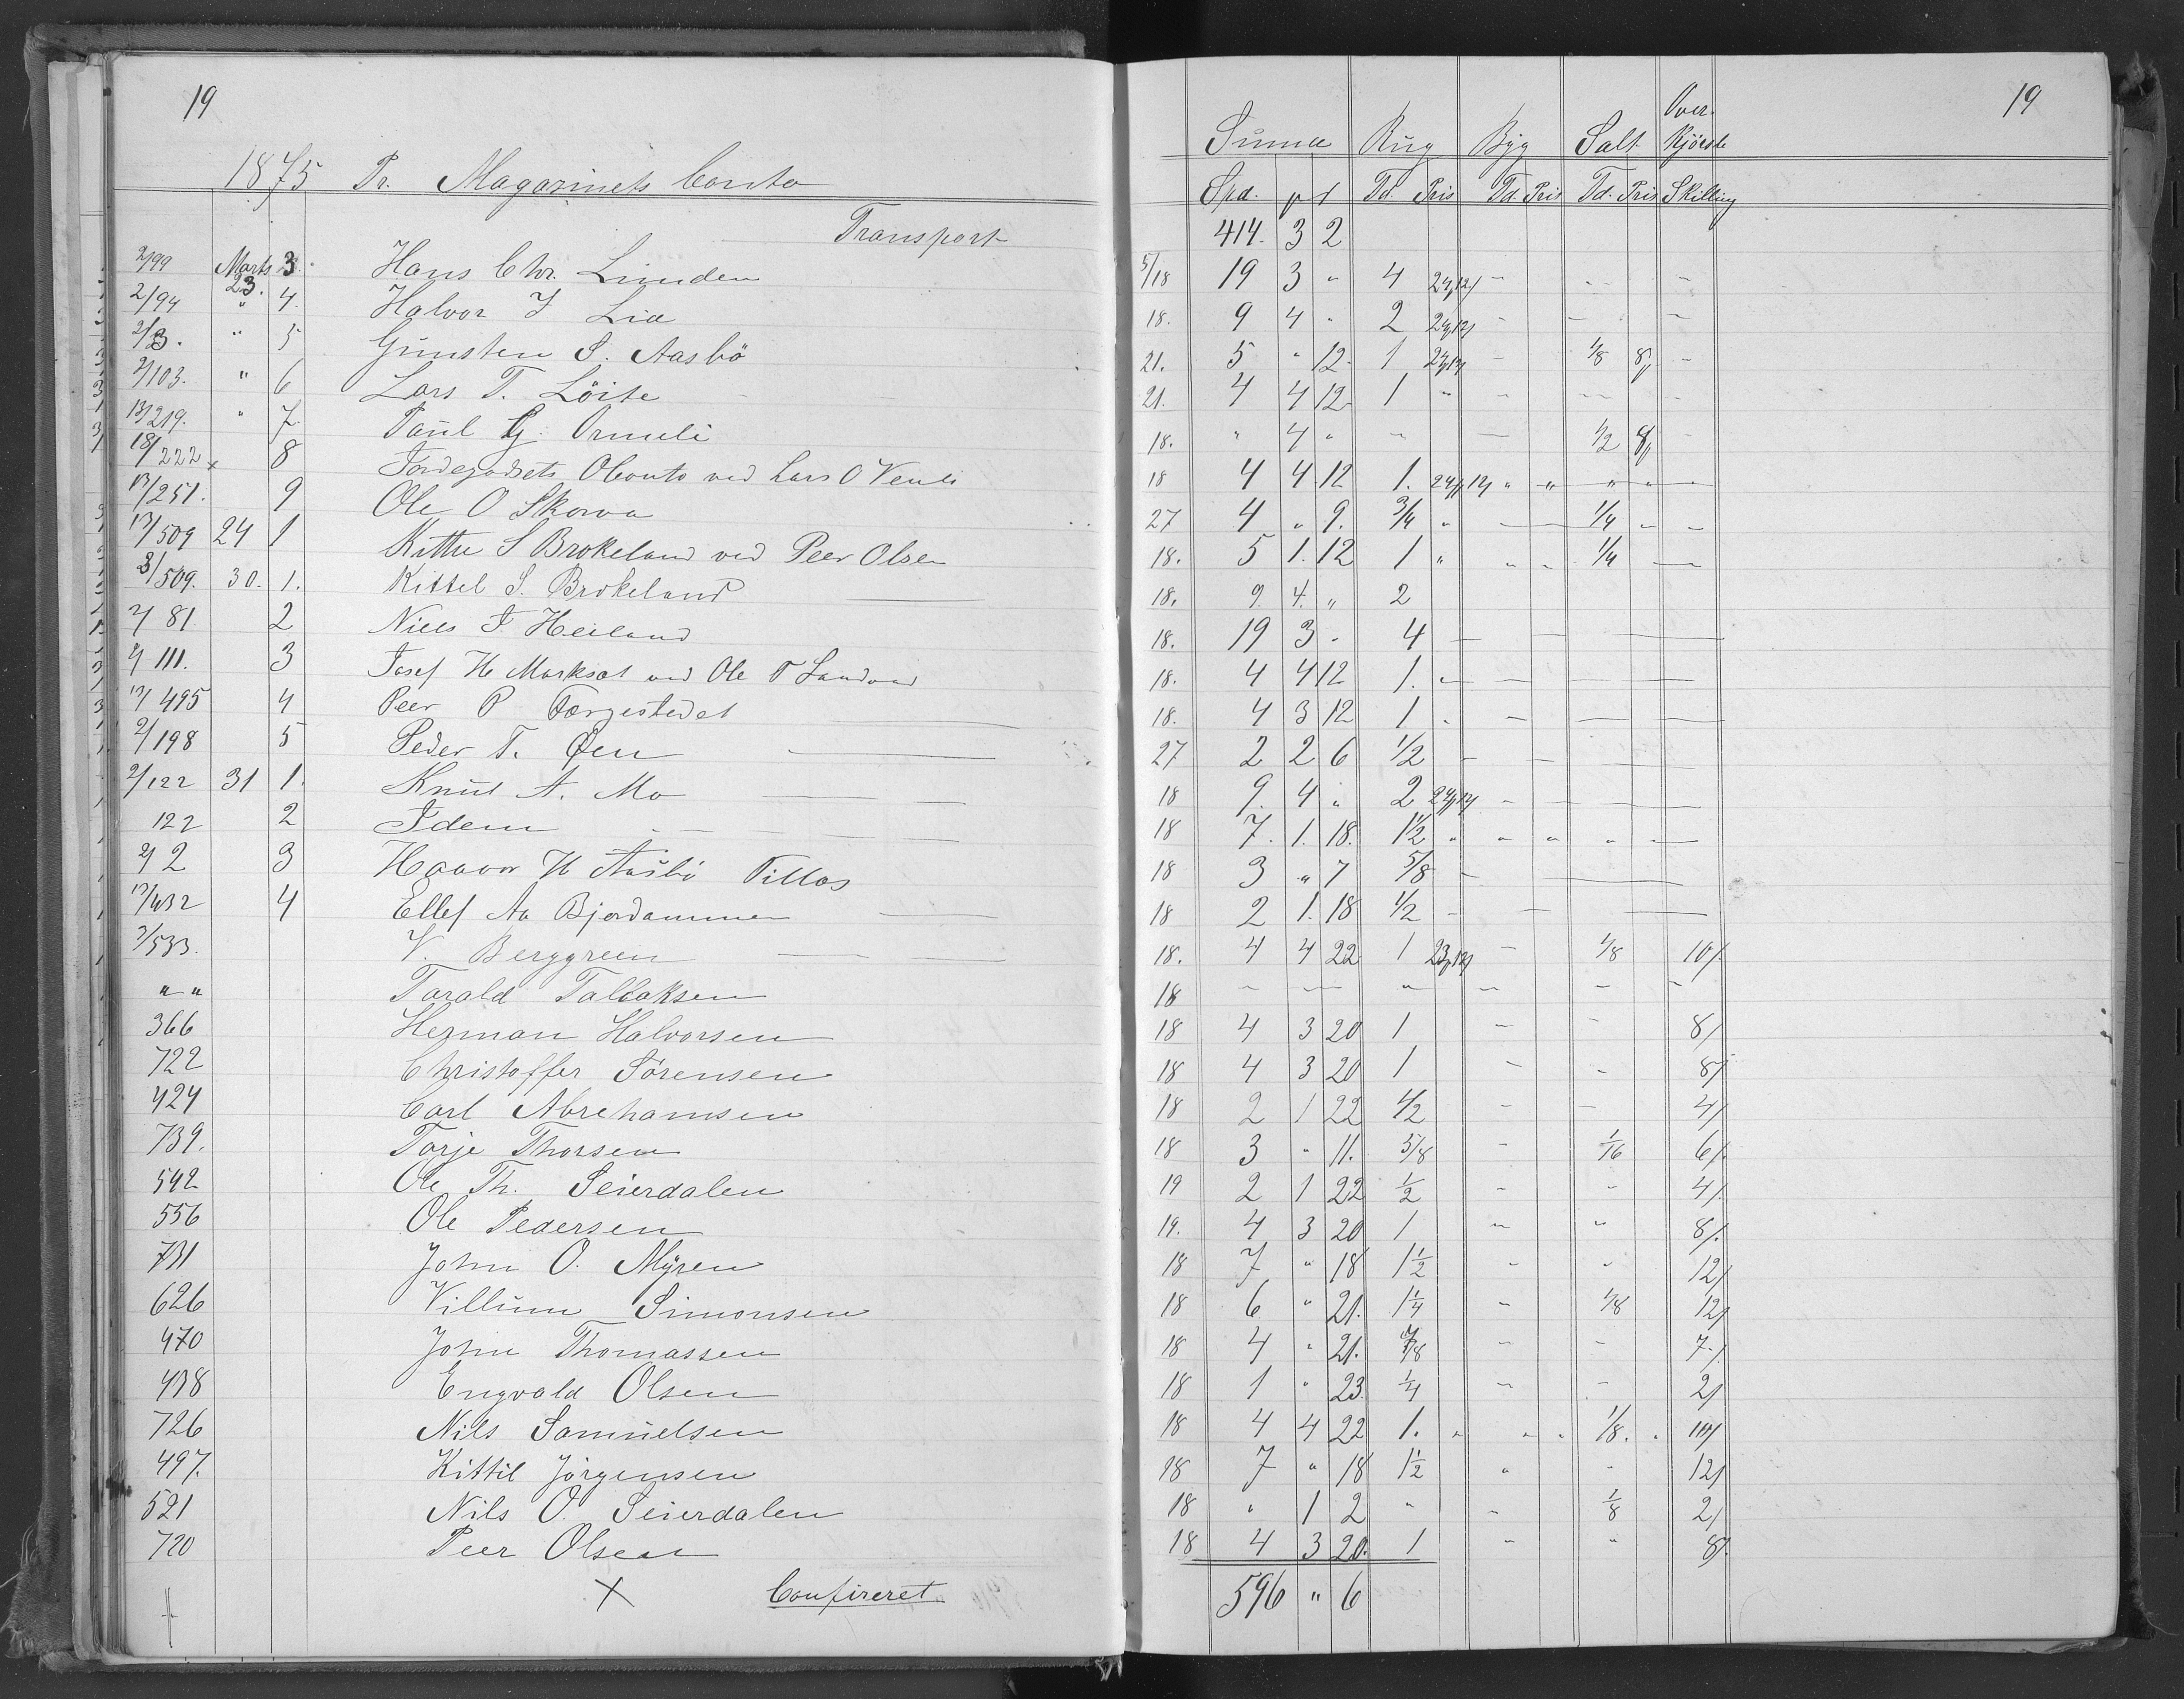 19
1875 Pr. Magazinets Conto
Transport
2/99 Marts 23. 3. Hans Chr. Linnden
2/94 " 4. Halvor J Lia
2/3. " 5 Gunsten S. Aasbö
2/103. " 6 Lars T. Löite
13/219. " 7. Paul G. Ormeli
18/222 x 8 Jordegodsets Oconto ved Lars O Venli
17/251. 9 Ole O Skorva
17/509 24 1 Kittil S Brokeland ved Peer Olsen
3/509. 30. 1. Kittel S. Brokeland
2/81 2 Niels J. Heiland
2/111. 3 Josef H Morksæt ved Ole T Landvad
17/495 4 Peer P Færgestedet
2/198 5 Peder T. Øen
2/122 31 1. Knut A. Mo
122 2 Idem
2/2 3 Haavor H Aasbö Tillæs
17/432 4 Ellef Aa Bjordammen
3/533. V. Berggreen
" " Tarald Tallaksen
366 Herman Halvorsen
722 Christoffer Sörensen
424 Carl Abrehamsen
739. Torje Thorsen
542 Ole Th. Seierdalen
556 Ole Pedersen
731 John O. Myren
626 Villum Simonsen
470 John Thomassen
438 Engvald Olsen
726 Nils Samuelsen
497. Kittil Jörgensen
521 Nils O. Seierdalen
720 Peer Olsen
x Confereret
19
Summa Rug Byg Salt Over-Kjörsle
Spd. Td. Pris Td. Pris Td. Pris Skilling
414. 3 2
5/18 19 3 " 4 24/12/ - - -
18. 9 4 " 2 24/12/ - - -
21. 5 " 12 1 24/12/ - 1/8 8/ -
21. 4 4 12 1 " - - -
18. " 4 " - - 1/2 8/ -
18 4 4 12 1. 24/12/ " " " " -
27 4 " 9. 3/4 " - - 1/4 - -
18. 5 1. 12 1 " " " 1/4 -
18. 9. 4. " 2
18. 19 3 - 4 - - -
18. 4 4 12 1. - - - -
18. 4 3 12 1 - - - -
27 2 2 6 1/2 - - -
18 9. 4 " 2 24/12/ - - - -
18 7. 1. 18. 1 1/2 " " " " -
18 3 " 7 5/8 - -
18 2 1. 18 1/2 - - -
18. 4 4 22 1 23/12/ - 1/8 10/
18 - - - - - -
18 4 3 20 1 - - 8/
18 4 3 20 1 - - 8/
18 2 1 22 1/2 - - 4/
18 3 " 11. 5/8 - 1/16 6/
19 2 1 22 1/2 - - 4/
19. 4 3 20 1 - " 8/.
18 7 " 18 1 1/2 - - 12/
18 6 " 21. 1 1/4 - 1/8 12/
18 4 " 21. 7/8 - - 7/
18 1 " 23. 1/4 - - 2/
18 4 4 22 1. " " " 1/8. " 10/
18 7 " 18 1 1/2 " - 12/
18 " 1 2 " - 1/8 2/
18 4 3 20. 1 - " 8/.
596 " 6